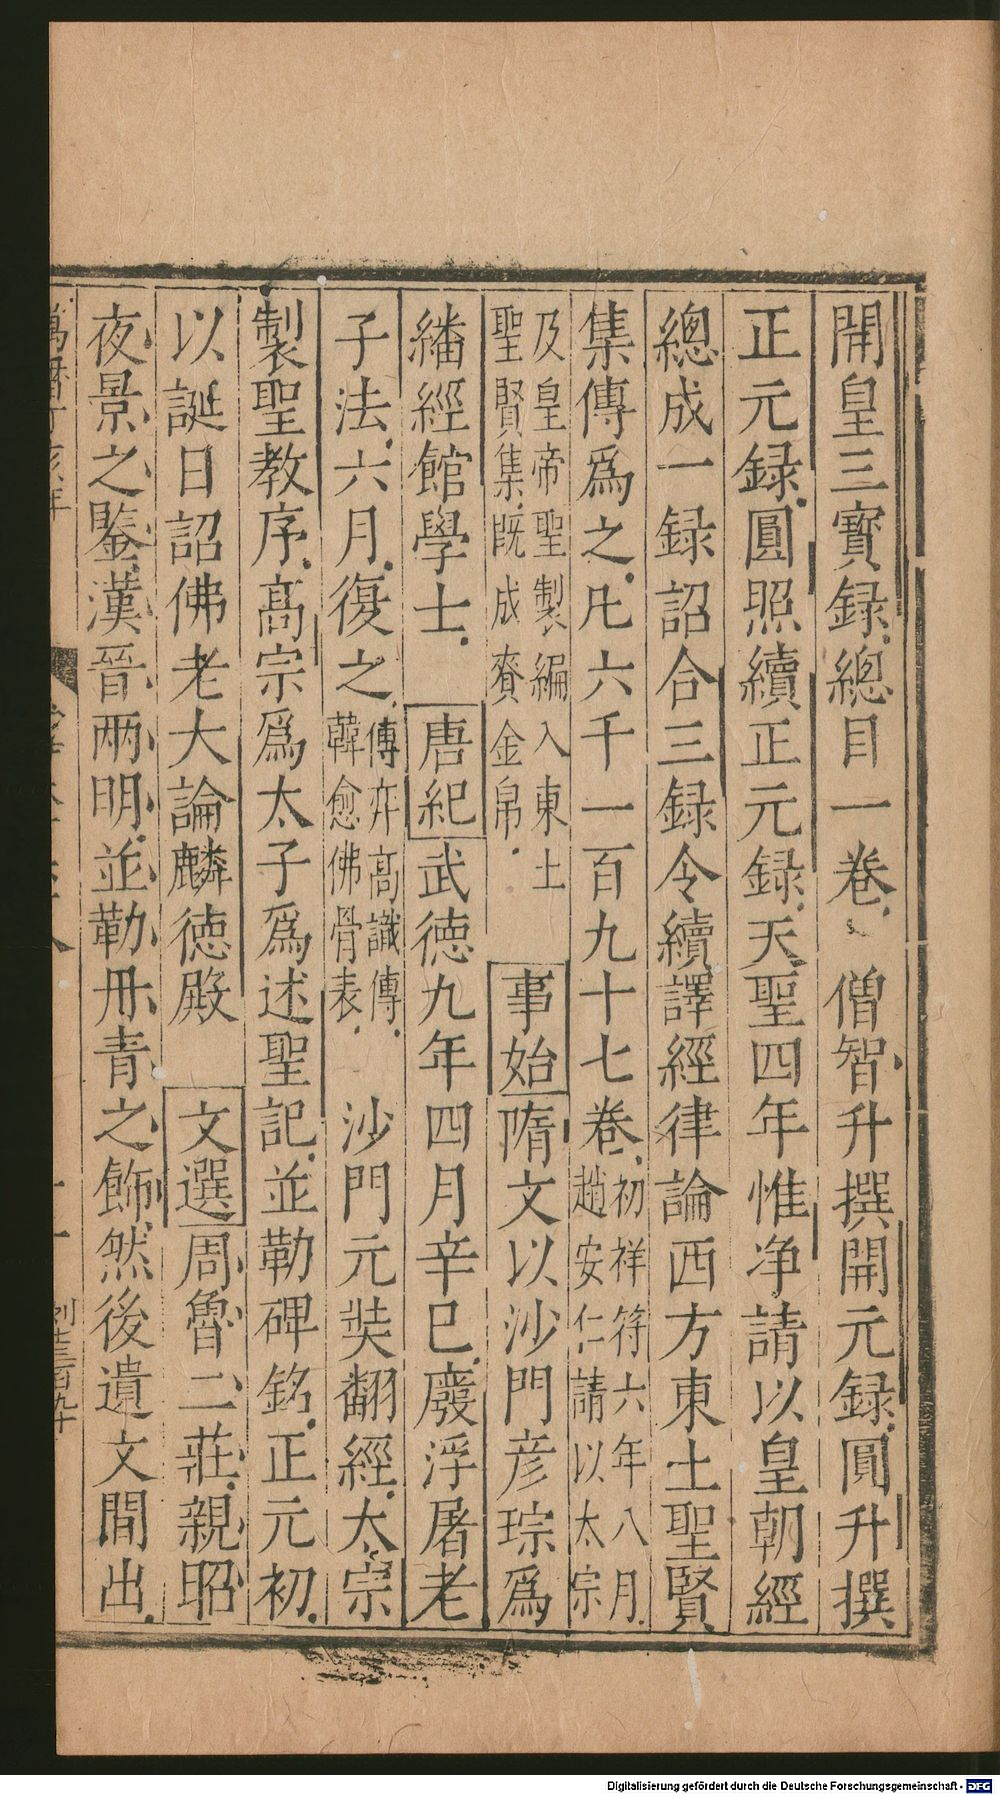 開皇三寳録總目一卷 僧智升撰開元録圓升撰
正元録圓照續正元録天聖四年惟净請以皇朝經
總成一録詔合三録令續譯經律論西方東土聖賢
集傳爲之凡六千一百九十七卷初祥符六年八月趙安仁請以太宗
及皇帝聖製編入東土聖賢集既成賚金帛 事始隋文以沙門彦琮爲
繙經館學士 唐紀武德九年四月辛巳廢浮屠老
子法六月復之傅弈高識傳韓愈佛骨表 沙門元奘翻經太宗
製聖教序高宗爲太子爲述聖記並勒碑銘正元初
以誕日詔佛老大論麟德殿 文選周魯二莊親昭
夜景之鑒漢晉兩明並勒丹青之飾然後遺文間出
Digitalisierung gefördert durch die Deutsche Forschungsgemeinschaft - DFG